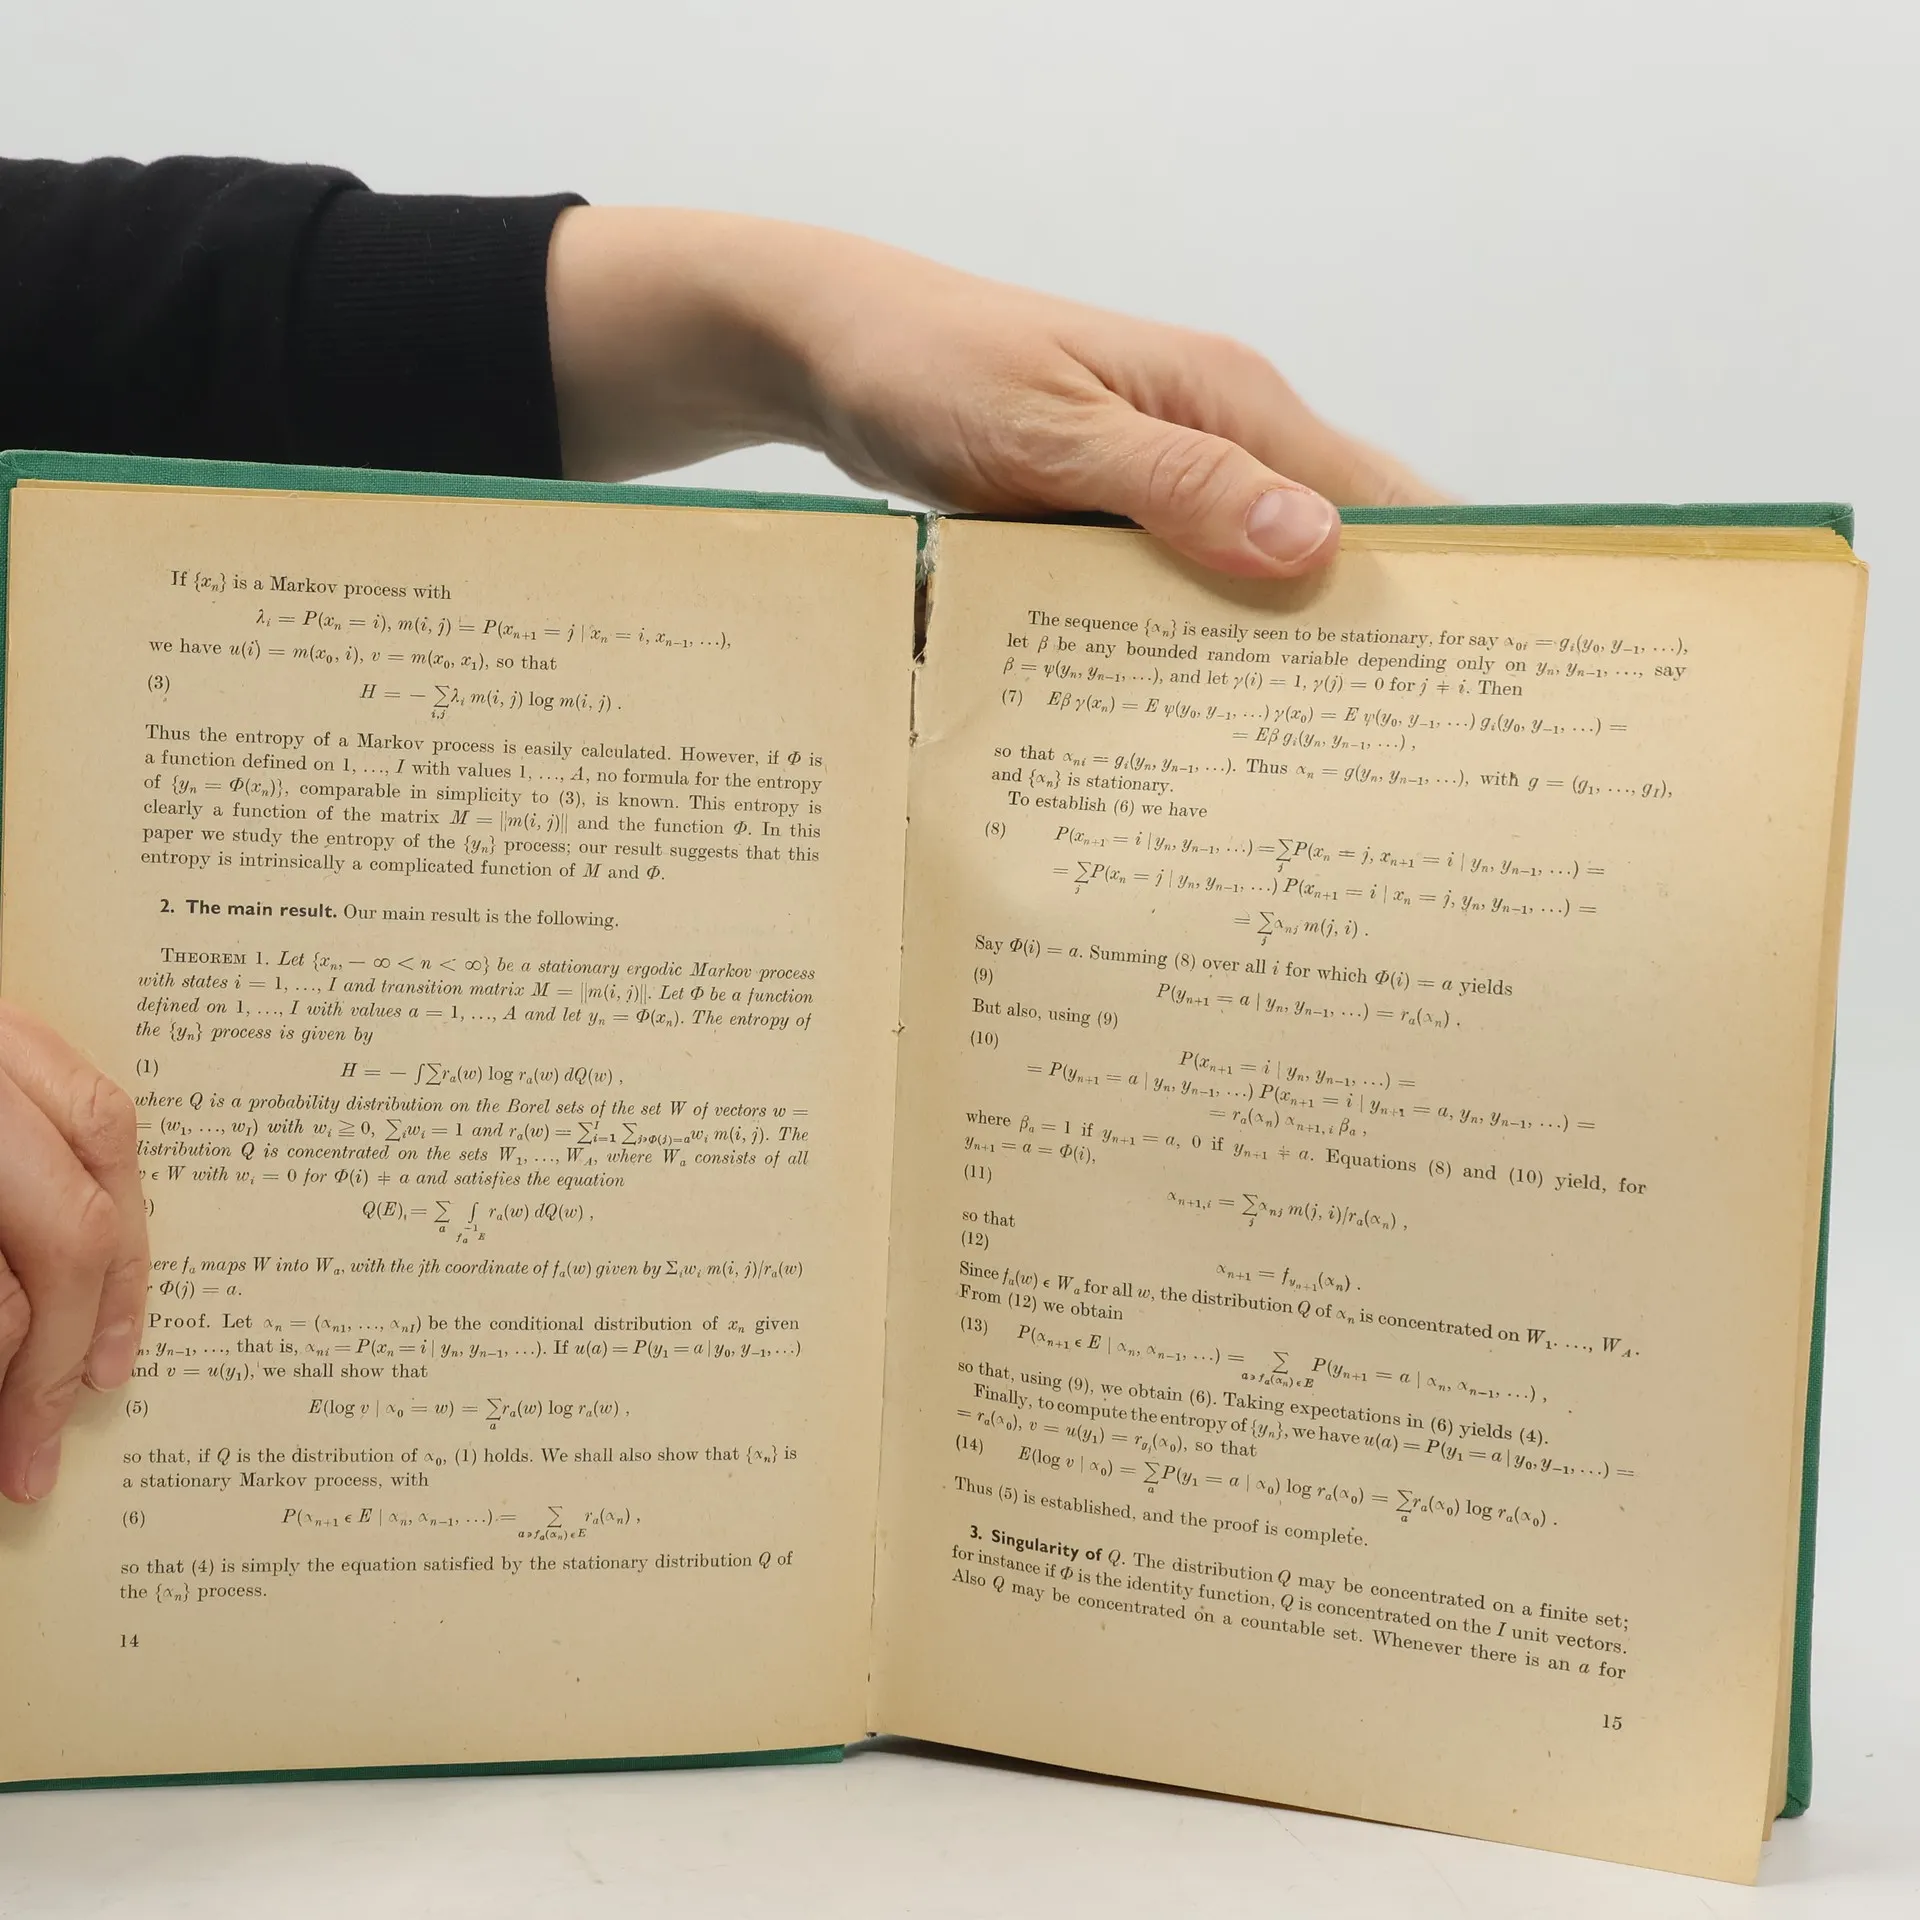 If {xₙ} is a Markov process with
λᵢ = P(xₙ = i), m(i, j) = P(xₙ₊₁ = j | xₙ = i, xₙ₋₁, ...),
we have u(i) = m(x₀, i), v = m(x₀, x₁), so that
(3) H = − ∑ λᵢ m(i, j) log m(i, j) .
i,j
Thus the entropy of a Markov process is easily calculated. However, if Φ is
a function defined on 1, ..., I with values 1, ..., A, no formula for the entropy
of {yₙ = Φ(xₙ)}, comparable in simplicity to (3), is known. This entropy is
clearly a function of the matrix M = ||m(i, j)|| and the function Φ. In this
paper we study the entropy of the {yₙ} process; our result suggests that this
entropy is intrinsically a complicated function of M and Φ.
2. The main result. Our main result is the following.
THEOREM 1. Let {xₙ, − ∞ < n < ∞} be a stationary ergodic Markov process
with states i = 1, ..., I and transition matrix M = ||m(i, j)||. Let Φ be a function
defined on 1, ..., I with values a = 1, ..., A and let yₙ = Φ(xₙ). The entropy of
the {yₙ} process is given by
(1) H = − ∫∑rₐ(w) log rₐ(w) dQ(w) ,
where Q is a probability distribution on the Borel sets of the set W of vectors w =
= (w₁, ..., w_I) with wᵢ ≧ 0, ∑ᵢwᵢ = 1 and rₐ(w) = ∑ᴵᵢ₌₁ ∑_{j∍Φ(j)=a} wᵢ m(i, j). The
distribution Q is concentrated on the sets W₁, ..., W_A, where Wₐ consists of all
ϵ W with wᵢ = 0 for Φ(i) ≠ a and satisfies the equation
) Q(E) = ∑ ∫ rₐ(w) dQ(w) ,
a fₐ⁻¹E
fₐ maps W into Wₐ, with the jth coordinate of fₐ(w) given by Σᵢwᵢ m(i, j)/rₐ(w)
Φ(j) = a.
Proof. Let αₙ = (αₙ₁, ..., αₙI) be the conditional distribution of xₙ given
yₙ₋₁, ..., that is, αₙᵢ = P(xₙ = i | yₙ, yₙ₋₁, ...). If u(a) = P(y₁ = a | y₀, y₋₁, ...)
and v = u(y₁), we shall show that
(5) E(log v | α₀ = w) = ∑ rₐ(w) log rₐ(w) ,
a
so that, if Q is the distribution of α₀, (1) holds. We shall also show that {αₙ} is
a stationary Markov process, with
(6) P(αₙ₊₁ ϵ E | αₙ, αₙ₋₁, ...) = ∑ rₐ(αₙ) ,
a∍fₐ(αₙ)ϵE
so that (4) is simply the equation satisfied by the stationary distribution Q of
the {αₙ} process.
14
The sequence {αₙ} is easily seen to be stationary, for say α₀ᵢ = gᵢ(y₀, y₋₁, ...),
let β be any bounded random variable depending only on yₙ, yₙ₋₁, ..., say
β = ψ(yₙ, yₙ₋₁, ...), and let γ(i) = 1, γ(j) = 0 for j ≠ i. Then
(7) Eβ γ(xₙ) = E ψ(y₀, y₋₁, ...) γ(x₀) = E ψ(y₀, y₋₁, ...) gᵢ(y₀, y₋₁, ...) =
= Eβ gᵢ(yₙ, yₙ₋₁, ...) ,
so that αₙᵢ = gᵢ(yₙ, yₙ₋₁, ...). Thus αₙ = g(yₙ, yₙ₋₁, ...), with g = (g₁, ..., g_I),
and {αₙ} is stationary.
To establish (6) we have
(8) P(xₙ₊₁ = i | yₙ, yₙ₋₁, ...) = ∑ P(xₙ = j, xₙ₊₁ = i | yₙ, yₙ₋₁, ...) =
j
= ∑ P(xₙ = j | yₙ, yₙ₋₁, ...) P(xₙ₊₁ = i | xₙ = j, yₙ, yₙ₋₁, ...) =
j
= ∑ αₙⱼ m(j, i) .
j
Say Φ(i) = a. Summing (8) over all i for which Φ(i) = a yields
(9) P(yₙ₊₁ = a | yₙ, yₙ₋₁, ...) = rₐ(αₙ) .
But also, using (9)
(10) P(xₙ₊₁ = i | yₙ, yₙ₋₁, ...) =
= P(yₙ₊₁ = a | yₙ, yₙ₋₁, ...) P(xₙ₊₁ = i | yₙ₊₁ = a, yₙ, yₙ₋₁, ...) =
= rₐ(αₙ) αₙ₊₁,ᵢ βₐ ,
where βₐ = 1 if yₙ₊₁ = a, 0 if yₙ₊₁ ≠ a. Equations (8) and (10) yield, for
yₙ₊₁ = a = Φ(i),
(11) αₙ₊₁,ᵢ = ∑ αₙⱼ m(j, i)/rₐ(αₙ) ,
j
so that
(12) αₙ₊₁ = f_{yₙ₊₁}(αₙ) .
Since fₐ(w) ϵ Wₐ for all w, the distribution Q of αₙ is concentrated on W₁, ..., W_A.
From (12) we obtain
(13) P(αₙ₊₁ ϵ E | αₙ, αₙ₋₁, ...) = ∑ P(yₙ₊₁ = a | αₙ, αₙ₋₁, ...) ,
a∍fₐ(αₙ)ϵE
so that, using (9), we obtain (6). Taking expectations in (6) yields (4).
Finally, to compute the entropy of {yₙ}, we have u(a) = P(y₁ = a | y₀, y₋₁, ...) =
= rₐ(α₀), v = u(y₁) = r_{y₁}(α₀), so that
(14) E(log v | α₀) = ∑ P(y₁ = a | α₀) log rₐ(α₀) = ∑ rₐ(α₀) log rₐ(α₀) .
a a
Thus (5) is established, and the proof is complete.
3. Singularity of Q. The distribution Q may be concentrated on a finite set;
for instance if Φ is the identity function, Q is concentrated on the I unit vectors.
Also Q may be concentrated on a countable set. Whenever there is an a for
15